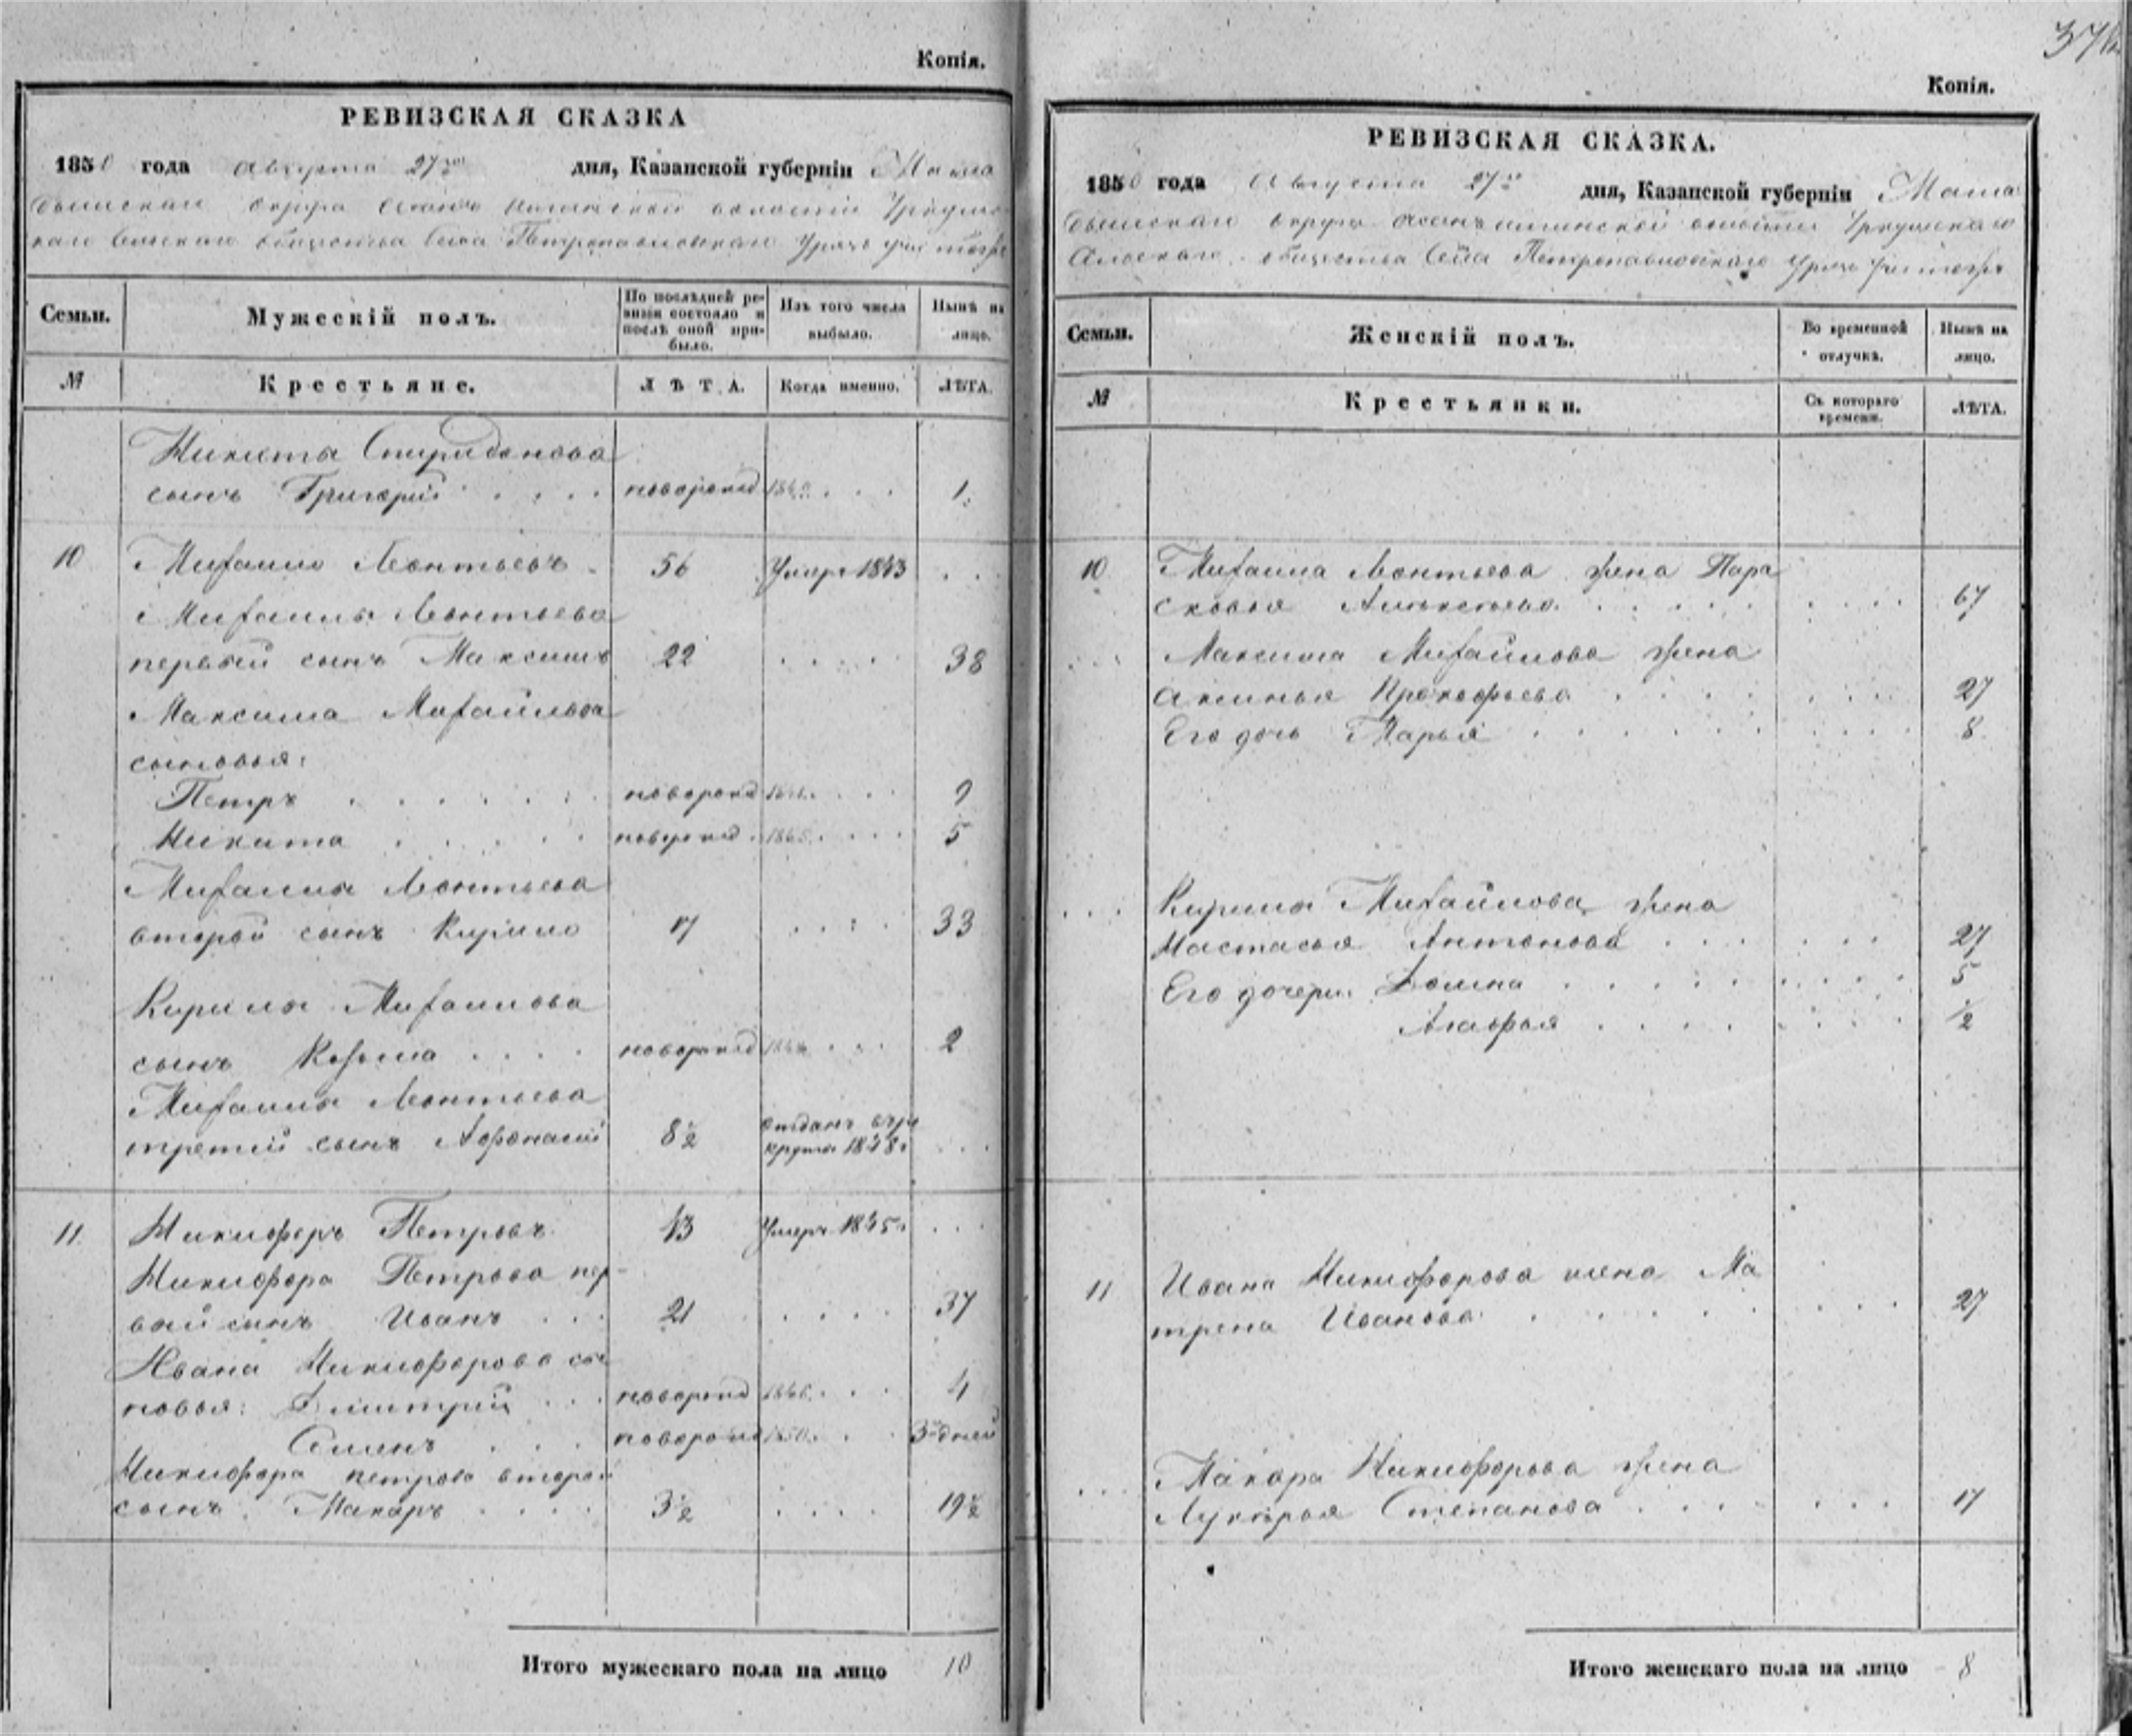 Копія.
РЕВИЗСКАЯ СКАЗКА
1850 года Августа 27го дня, Казанской губерніи Мама
дышскаго округа волости
каго Сельскаго общества Села Петропавловскаго
Семьи.
Мужескій полъ.
По послѣдней ре-
визіи состояло и
послѣ оной при-
было.
Изъ того числа
выбыло.
Нынѣ на
лицо.
№
Крестьяне.
ЛѢТА.
Когда именно.
ЛѢТА.
Никиты Спиридонова
сынъ Григорій . . . . новорожд . . . 1.
10 Михайло Леонтьевъ 56 Умеръ 1843 . .
Михайлы Леонтьева
первый сынъ Максимъ 22 . . . . 38
Максима Михайлова
сыновья:
Петръ . . . . . новорожд . . . 9
Никита . . . . . новорожд 1845 . . . . 5
Михайлы Леонтьева
второй сынъ Кирило 17 . . . . 33
Кирилы Михайлова
сынъ Козьма . . . . новорожд . . . 2
Михайлы Леонтьева
третій сынъ Афонасій 8½ отданъ въ ре
круты 1848г . . .
11. Никифоръ Петровъ 43 Умеръ 1845г. . . .
Никифора Петрова пер-
вый сынъ Иванъ . . . 21 . . . . 37
Ивана Никифорова сы
новья: Дмитрій . . . новорожд 1846 . . . 4
Семенъ . . . новорожд 1850 . . . дней
Никифора Петрова второй
сынъ Макаръ . . . . 3½ . . . . 19½
Итого мужескаго пола на лицо 10
Копія.
РЕВИЗСКАЯ СКАЗКА.
1850 года Августа 27го дня, Казанской губерніи Мама
дышскаго округа волости
Сельскаго общества Села Петропавловскаго
Семьи.
Женскій полъ.
Во временной
отлучкѣ.
Нынѣ на
лицо.
№
Крестьянки.
Съ котораго
времени.
ЛѢТА.
10 Михайла Леонтьева жена Пара
сковья Алексѣева . . . . . 67
Максима Михайлова жена
Аксинья Прокофьева . . . . 27
Его дочь Марья . . . . . . 8
Кирилы Михайлова жена
Настасья Антонова . . . . 27
Его дочери: Домна . . . . . 5
Агафья . . . . ½
11 Ивана Никифорова жена Ма
трена Иванова . . . . . 27
Макара Никифорова жена
Лукерья Степанова . . . . 17
Итого женскаго пола на лицо 8